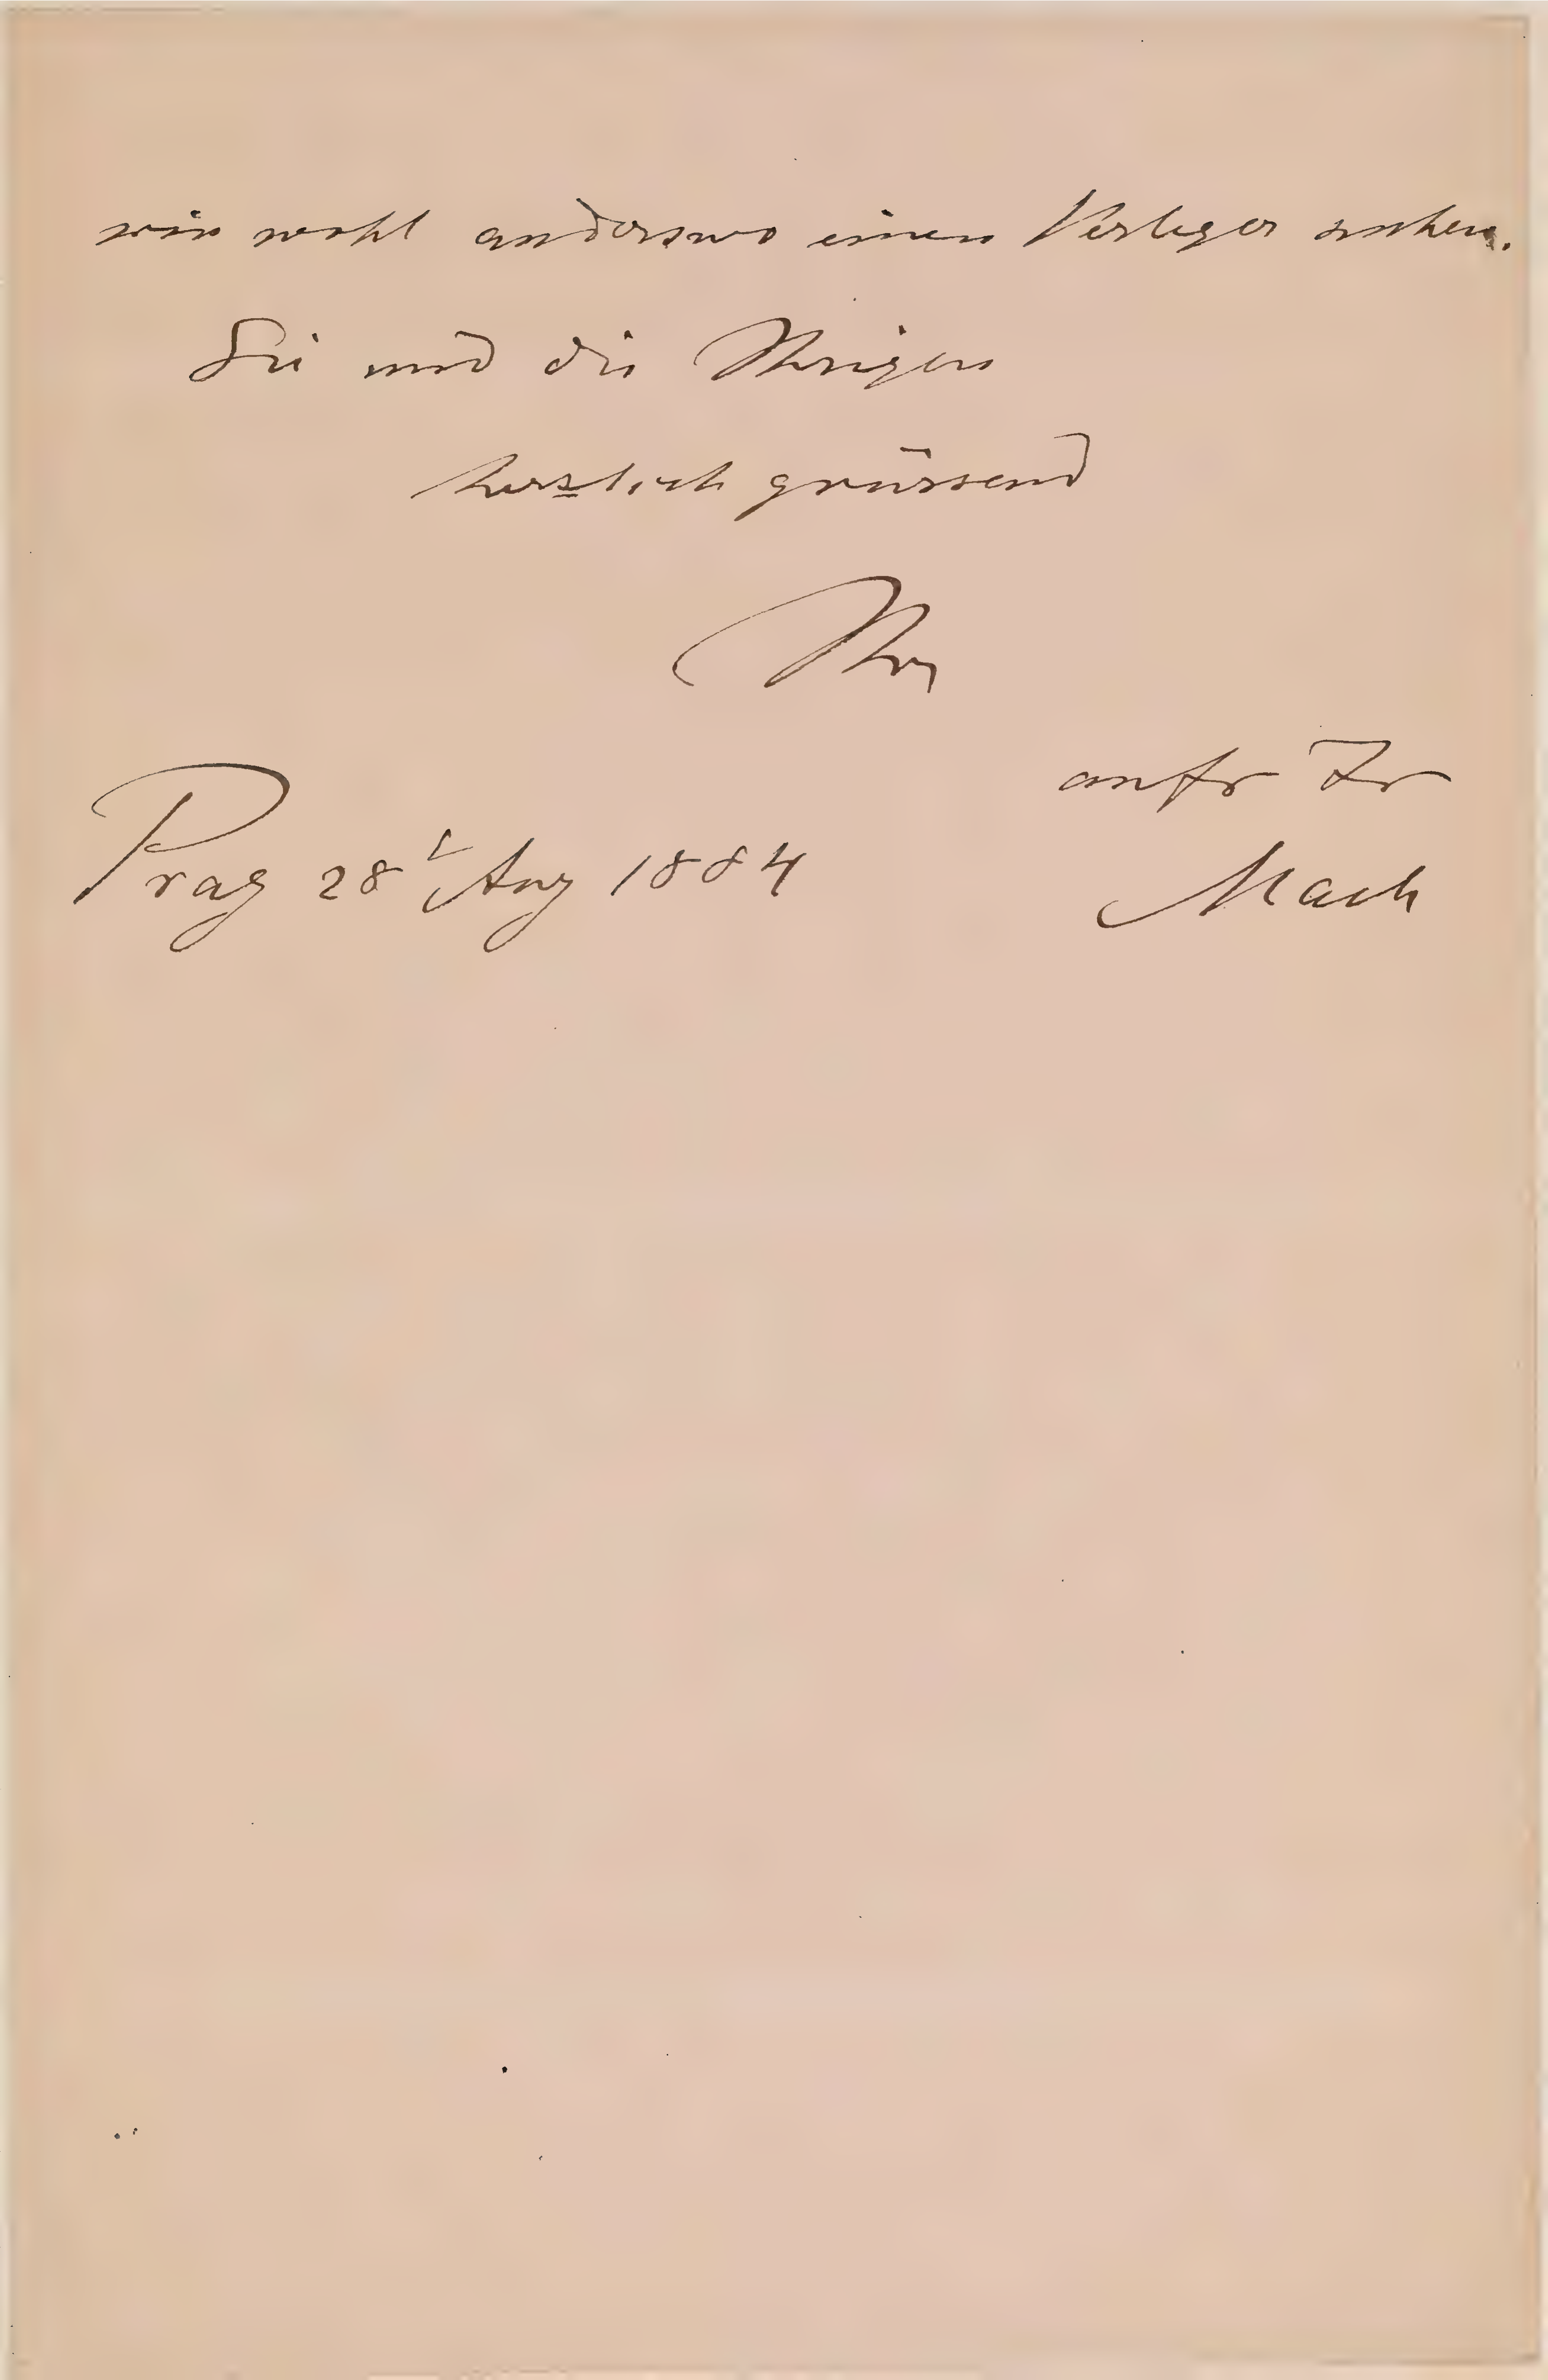 wir wohl anderswo einen Verleger suchen.
Sie und die Ihrigen
herzlich grüssend
Ihr
aufr Fr
Mach
Prag 28 t Aug 1884